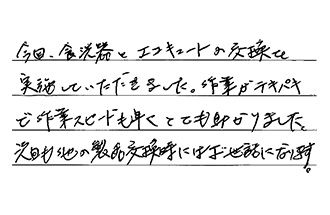 今回、食洗器とエコキュートの交換を
実施していただきました。作業がテキパキ
で作業スピードも早くとても助かりました。
次回も他の製品交換時にはお世話になります。